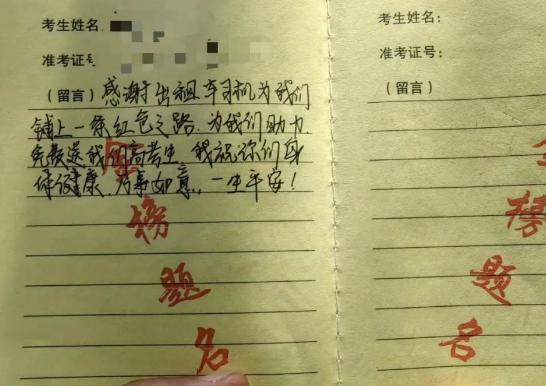 考生姓名:
准考证号
(留言)感谢出租车司机为我们
铺上一条红色之路,为我们助力,
免费送我们高考生,我祝你们身
体健康,万事如意,一生平安!
金
榜
题
名
考生姓名:
准考证号:
(留言)
金
榜
题
名